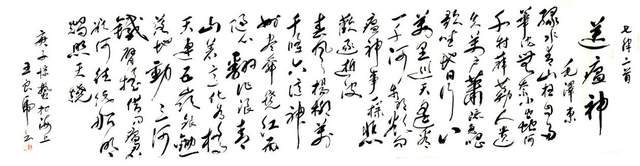 七律二首
送瘟神
毛泽东
绿水青山枉自多
华佗无奈小虫何
千村薜荔人遗
矢万户萧疏鬼唱
歌坐地日行八
万里巡天遥看
一千河牛郎欲问
瘟神事一样悲
欢逐逝波
春风杨柳万
千条六亿神
州尽舜尧红雨
随心翻作浪青
山着意化为桥
天连五岭银锄
落地动三河
铁臂摇借问瘟君
欲何往纸船明
烛照天烧
庚子惊蛰於海上